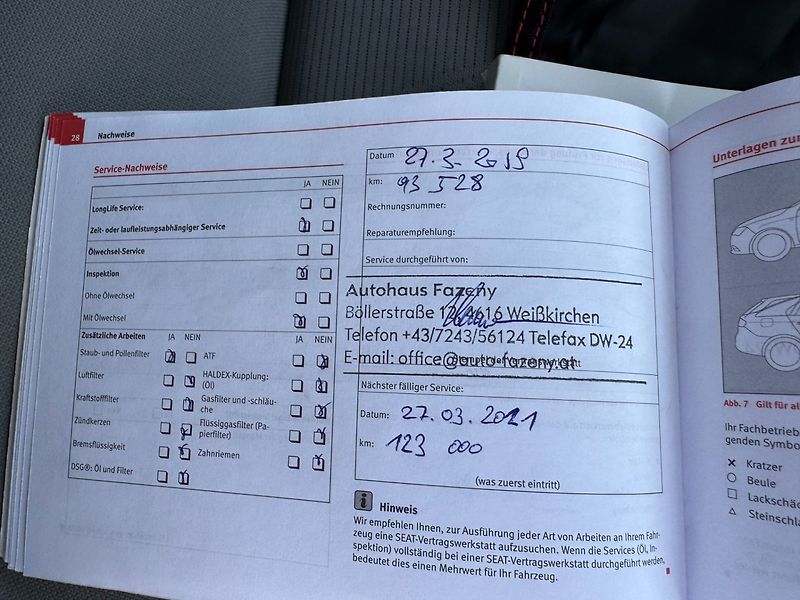 28 Nachweise
Service-Nachweise
JA NEIN
LongLife Service:
Zeit- oder laufleistungsabhängiger Service
Ölwechsel-Service
Inspektion
Ohne Ölwechsel
Mit Ölwechsel
Zusätzliche Arbeiten JA NEIN JA NEIN
Staub- und Pollenfilter
Luftfilter
Kraftstofffilter
Zündkerzen
Bremsflüssigkeit
DSG®: Öl und Filter
ATF
HALDEX-Kupplung:
(Öl)
Gasfilter und -schläu-
che
Flüssiggasfilter (Pa-
pierfilter)
Zahnriemen
Datum 27.3.2019
km: 93 528
Rechnungsnummer:
Reparaturempfehlung:
Service durchgeführt von:
Autohaus Fazeny
Böllerstraße 4616 Weißkirchen
Telefon +43/7243/56124 Telefax DW-24
E-mail: office@auto-fazeny.at
Nächster fälliger Service:
Datum: 27.03.2021
km: 123 000
(was zuerst eintritt)
i Hinweis
Wir empfehlen Ihnen, zur Ausführung jeder Art von Arbeiten an Ihrem Fahr-
zeug eine SEAT-Vertragswerkstatt aufzusuchen. Wenn die Services (Öl, In-
spektion) vollständig bei einer SEAT-Vertragswerkstatt durchgeführt werden,
bedeutet dies einen Mehrwert für Ihr Fahrzeug.
Unterlagen zu
Abb. 7 Gilt für al
Ihr Fachbetrieb
genden Symbo
Kratzer
Beule
Lackschä
Steinschla